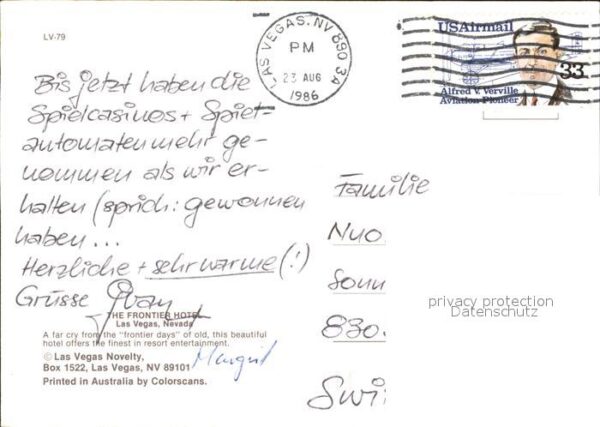 LV-79
LAS VEGAS, NV 890 3A
PM
23 AUG
1986
USAirmail
33
Alfred V. Verville
Aviation Pioneer
Bis jetzt haben die
Spielcasinos + Spiel-
automaten mehr ge-
nommen als wir er-
halten (sprich: gewonnen
haben...
Herzliche + sehr warme (!)
Grüsse
THE FRONTIER HOTEL
Las Vegas, Nevada
A far cry from the "frontier days" of old, this beautiful
hotel offers the finest in resort entertainment.
© Las Vegas Novelty,
Box 1522, Las Vegas, NV 89101
Printed in Australia by Colorscans.
Margrit
Familie
Nuo
Sonn
830
Swi
privacy protection
Datenschutz